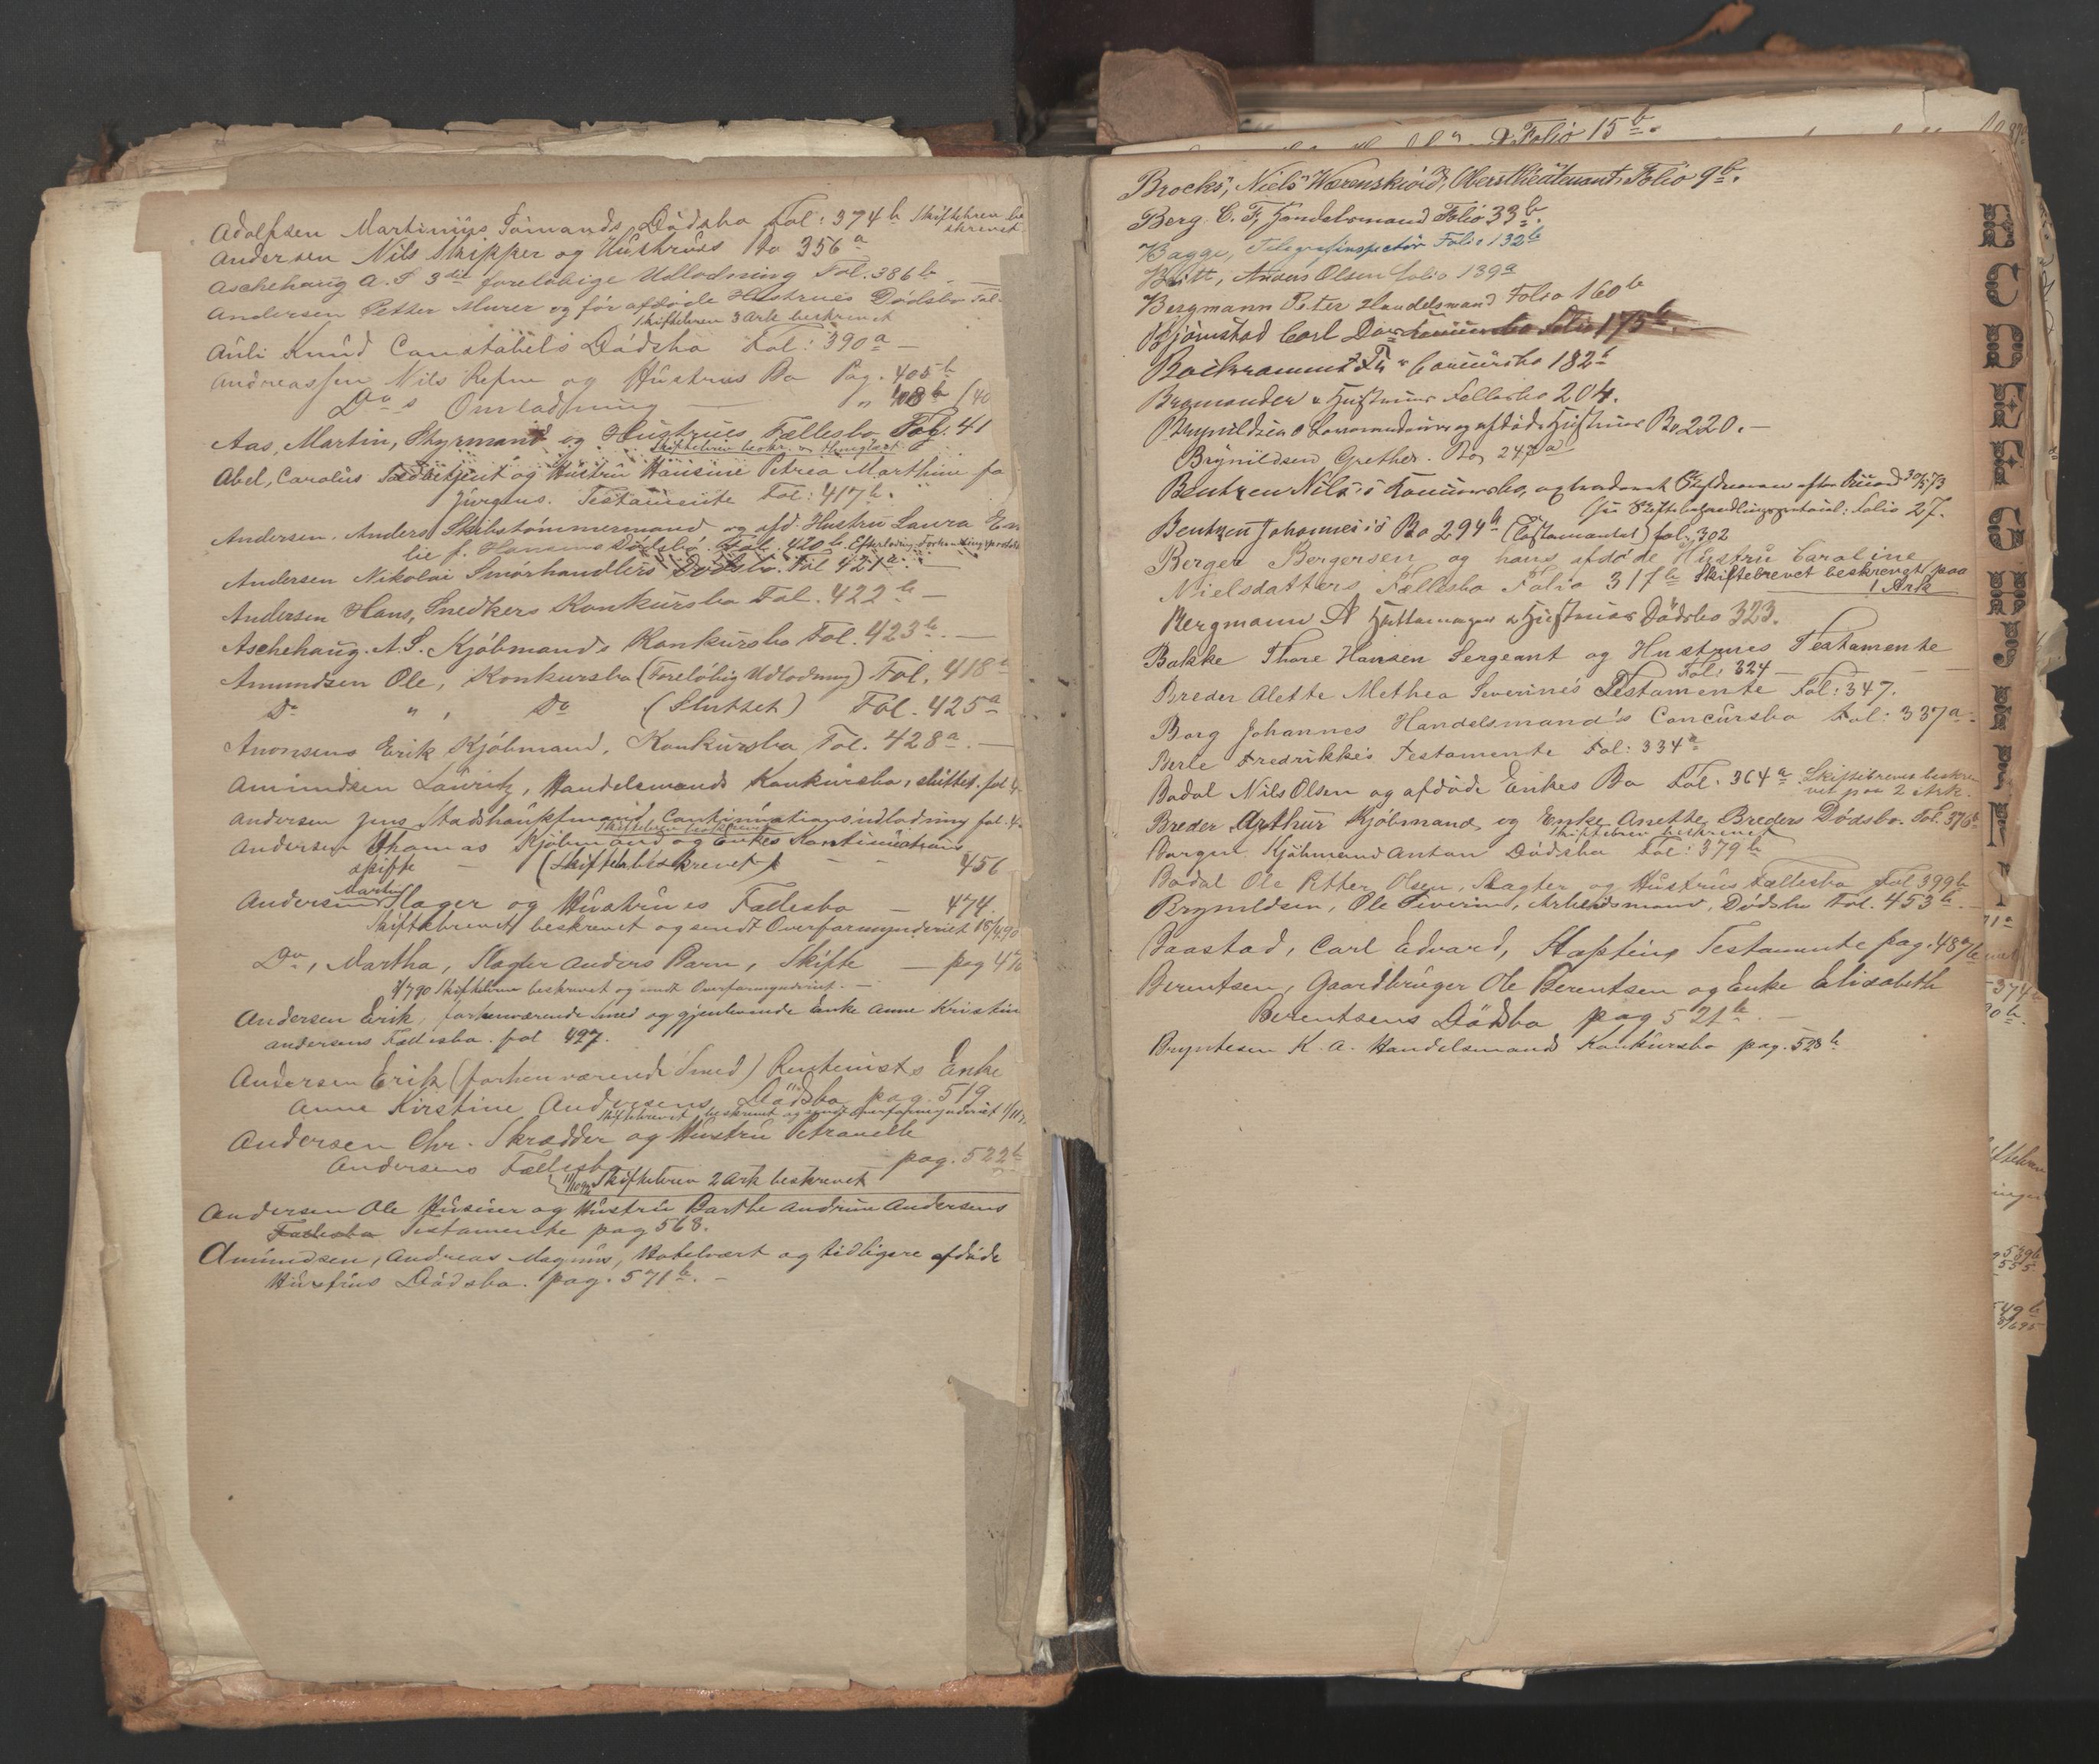 Adolfsen Martinius Sömands Dödsbo Fol: 374 b Skiftebrev be
skrevet
Andersen Nils Skipper og Hustrues Bo 356 a
Aschehaug A. S 3die foreløbige Udlodning Fol. 386 b
Andersen Petter Murer og før afdøde Hustrues Dödsbo Fol.
Skiftebrev 3 Ark beskrevet
Auli Knud Constabels Dödsbo Fol: 390 a —
Andreassen Nils og Hustrues Bo Pag. 405 b
Do s Omlodning — " 408 b
Aas, Martin, Styrmand og Hustrues Fællesbo Fol. 41
Abel, Carolus Toldbetjent og Hustru Hansine Petrea Marthine fö
Jürgens. Testamente Fol: 417 b.
Andersen, Anders Skibstömmermand og afd. Hustru Laura Em
lie f. Hansens Dödsbo. Fol. 420 b
Andersen Nikolai Smörhandlers Dödsbo. Fol 421 a. —
Andersen Hans, Snedkers Konkursbo Fol. 422 b —
Aschehaug. A. S. Kjöbmands Konkursbo Fol. 423 b. —
Amundsen Ole, Konkursbo (Foreløbig Udlodning) Fol. 418
Do " , Do (Sluttet) Fol. 425 a
Aronsens Erik Kjöbmand, Konkursbo Fol. 428 a. —
Amundsen Lauritz, Handelsmands Konkursbo, sluttet. fol 4
Andersen Jens Stadshauptmand Continuationsudlodning fol. 4
Skiftebrev beskrevet
Andersen Thomas Kjöbmand og Enkes Kontinuations
skifte — (Skiftebr beskrevet) — — 456
Martin
Andersen Slager og Hustrues Fællesbo — 474.
Skiftebrevet beskrevet og sendt Overformynderiet 15/4 90
Do, Martha, Slagter Anders Barn, Skifte — pag 47
Skiftebrev beskrevet og sendt Overformynderiet. —
Andersen Erik, forhenværende Smed og gjenlevende Enke Anne Kristine
Andersens Fællesbo. fol 497.
Andersen Erik (forhenværende Smed) Rentenists Enke
Anne Kirstine Andersens Dödsbo pag. 519
Skiftebrevet beskrevet og sendt Overformynderiet
Andersen Chr. Skrædder og Hustru Petronelle
Andersens Fællesbo pag. 522 b
Skiftebrev 2 Ark beskrevet
Andersen Ole Huseier og Hustru Barthe Andrine Andersens
Fællesbo Testamente pag 568.
Amundsen, Andreas Magnus, Hotelvært og tidligere afdöde
Hustrus Dödsbo. pag. 571 b. —
Folio 15 b.
Brocks, Niels Wærenskiold, Oberstlieutenant, Folio 9 b.
Berg. C. F, Handelsmand Folio 33 b.
Bagge, Telegrafinspectör Folio 132 b
Britt, Anders Olsen folio 139 a
Bergmann Peter Handelsmand Folio 160 b
Bjørnstad Carl Concursbo Folio 175 b. —
Concursbo 182 b
Brymander & Hustrues Fællesbo 204.
Brynildsen O og afdöde Hustrues Bo 220. —
Brynildsen Grethes. Bo, 247 a
Bentzen Nils's Concursbo,
Skiftebehandlingsprotocol: folio 27.
Bentzen Johannes's Bo 294 a (Testamentet) fol. 302
Berger Bergersen og hans afdöde Hustru Caroline
Nielsdatters Fællesbo Folio 317 b Skiftebrevet beskrevet paa
1 Ark
Bergmann A Hattemager & Hustrues Dödsbo 323.
Bakke Thore Hansen Sergeant og Hustrues Testamente
Fol: 324 —
Breder Alette Methea Severine's Testamente Fol: 347.
Borg Johannes Handelsmand's Concursbo Fol: 337 a
Berle Fredrikke's Testamente Fol: 334 a
Bødal Nils Olsen og afdöde Enkes Bo Fol. 364 a Skiftebrevet beskre
vet paa 2 Ark.
Breder Arthur Kjöbmand, og Enke Anette Breders Dödsbo. Fol. 376
Skiftebrev beskrevet
Borgen Kjöbmand Anton Dödsbo Fol: 379 b
Bødal Ole Petter Olsen, Slagter og Hustrus Fællesbo Fol 399 b
Brynildsen, Ole Severin, Arbeidsmand, Dödsbo Fol. 453 b. —
Baastad, Carl Edvard, Kapteins Testamente pag. 487 b
Berentsen, Gaardbruger Ole Berentsen og Enke Elisabeth
Berentsens Dödsbo pag 521 b. —
Bryntesen K. A. Handelsmands Konkursbo pag. 528 b
B
C
D
E
F
G
H
J